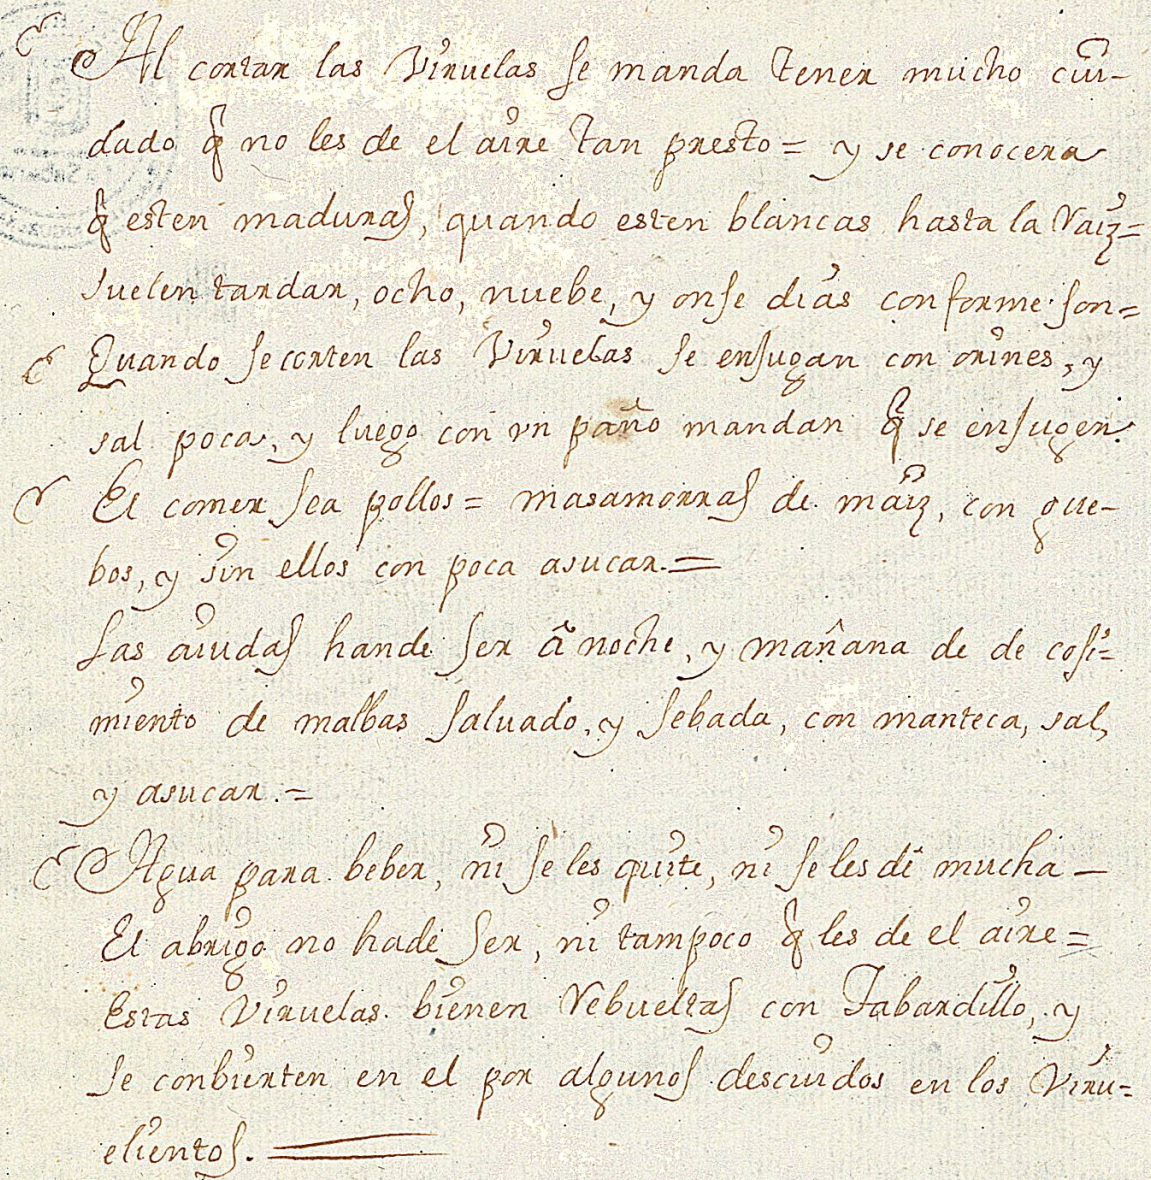 Al cortar las Viruelas se manda tener mucho cui-
dado q̃ no les de el aire tan presto = y se conocera
q̃ esten maduras, quando esten blancas hasta la raiz =
suelen tardar, ocho, nuebe, y onse dias conforme son =
Quando se corten las Viruelas se ensugan con orines, y
sal poca, y luego con vn paño mandan q̃ se ensugen.
El comer sea pollos = masamorras de maiz, con gue-
bos, y sin ellos con poca asucar. =
Las aiudas hande ser â noche, y mañana de de cosi=
miento de malbas saluado, y sebada, con manteca, sal,
y asucar. =
Agua para beber, ni se les quite, ni se les dê mucha —
El abrigo no hade ser, ni tampoco q̃ les de el aire =
Estas Viruelas bienen rebueltas con Tabardillo, y
se conbierten en el por algunos descuidos en los Viru=
elientos. =